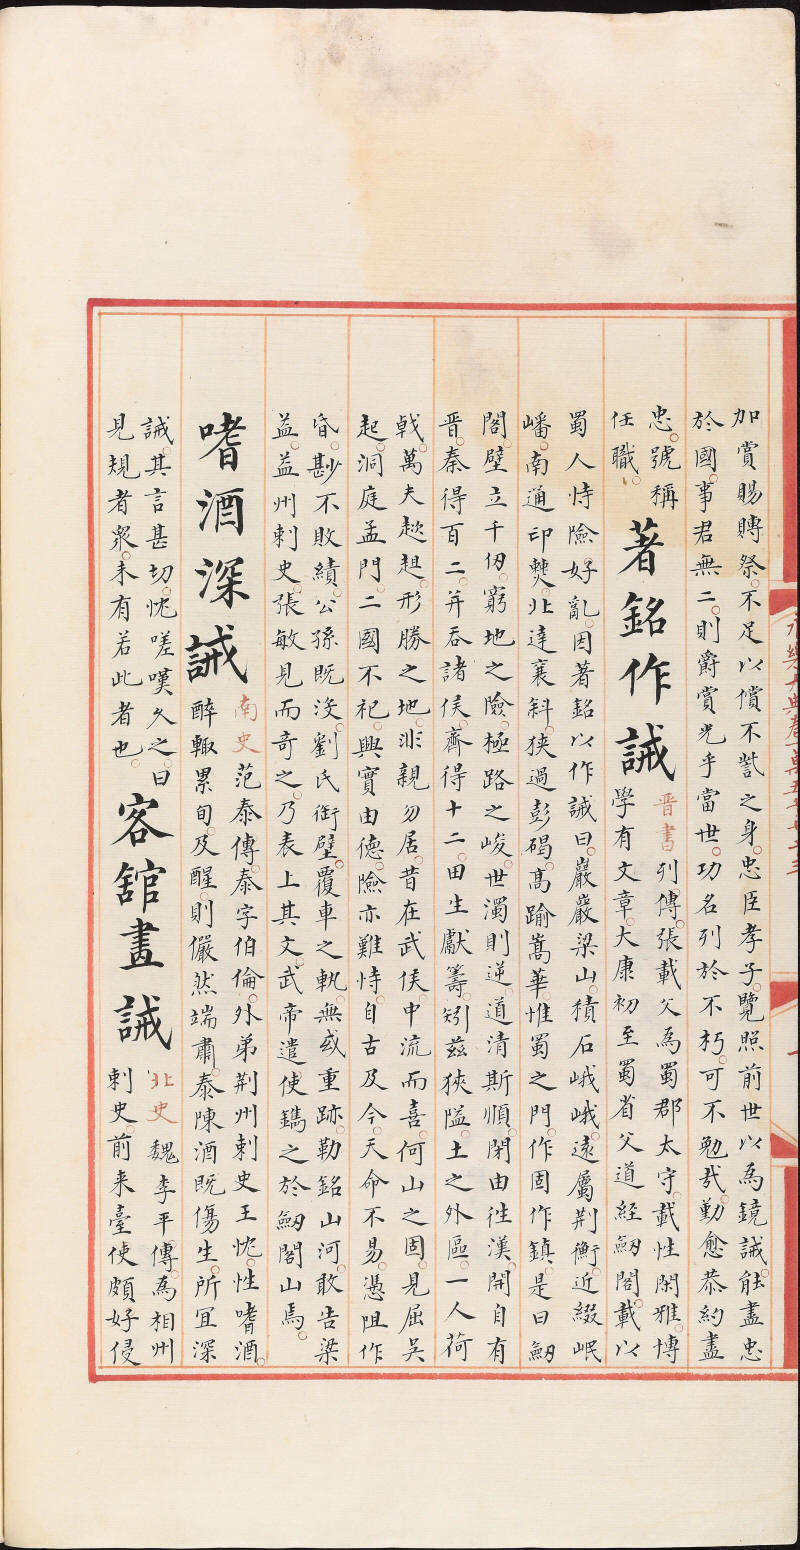 永樂大典卷一萬五千七十三
加賞賜賻祭。不足以償不訾之身。忠臣孝子。覽照前世以為鏡誡。能盡忠
於國。事君無二。則爵賞光乎當世。功名列於不朽。可不勉哉。勤愈恭約盡
忠。號稱
任職。
著銘作誡
晉書列傳。張載父為蜀郡太守。載性閑雅博
學有文章。太康初至蜀省父道經劒閣。載以
蜀人恃險。好亂。因著銘以作誡曰。巖巖梁山。積石峨峨。遠屬荆衡。近綴岷
嶓。南通卭僰。北達襄斜。狹過彭碣。髙踰嵩華。惟蜀之門。作固作鎮。是曰劒
閣。壁立千仞。窮地之險。極路之峻。世濁則逆。道清斯順。閉由徃漢。開自有
晉。秦得百二。并吞諸侯。齊得十二。田生獻籌。矧茲狹隘。土之外區。一人荷
戟。萬夫趑趄。形勝之地。非親勿居。昔在武侯。中流而喜。何山之固。見屈吴
起。洞庭孟門。二國不祀。興實由德。險亦難恃。自古及今。天命不易。憑阻作
昏。尠不敗績。公孫既没。劉氏銜璧。覆車之軌。無或重跡。勒銘山河。敢告梁
益。益州刺史。張敏見而奇之。乃表上其文。武帝遣使鐫之於劒閣山焉。
嗜酒深誡
南史范泰傳。泰字伯倫。外弟荆州刺史王忱。性嗜酒。
醉輙累旬。及醒。則儼然端肅。泰陳酒既傷生。所宜深
誡。其言甚切。忱嗟嘆久之。曰
見規者衆。未有若此者也。
客館畫誡
北史魏李平傳。為相州
刺史。前来臺使頗好侵